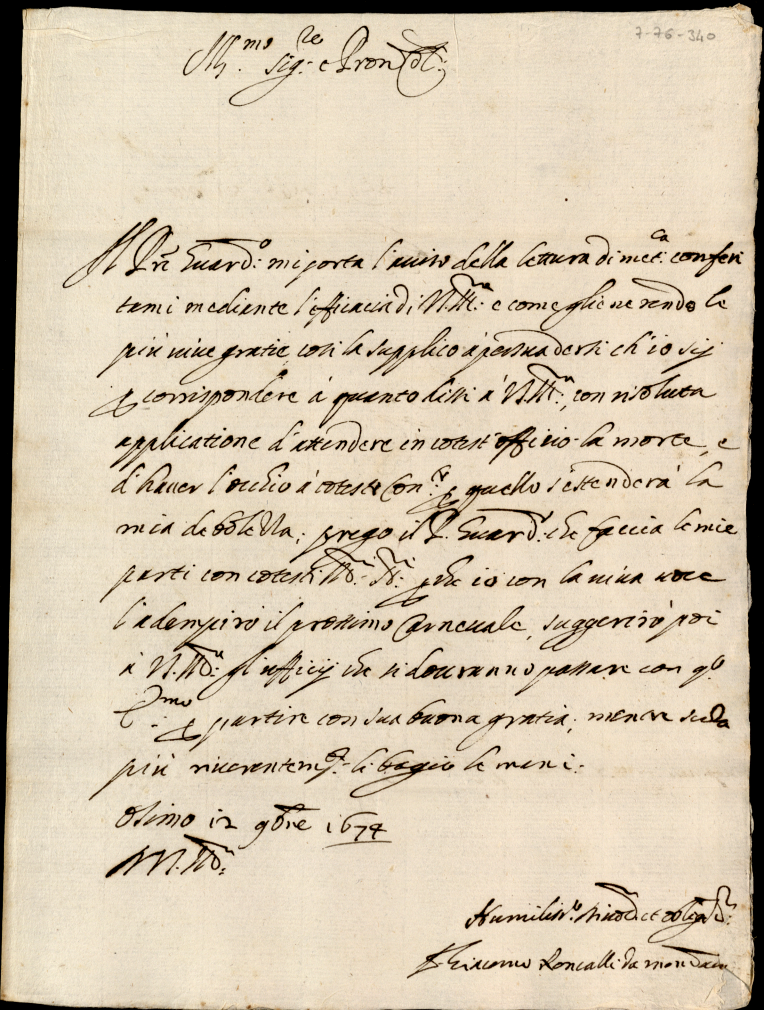 7-76-340
Ill.mo Sig.re e Pron Col.
Il Pre Guard.o mi porta l'auiso della lettura di met.ca conferi
tami mediante l'efficacia di V.S. Ill.ma e come gliene rendo le
più viue gratie, così la supplico à persuadersi ch'io sij
p corrispondere à quanto dissi à V.S. Ill.ma, con risoluta
applicatione d'attendere in cotest'officio la morte, e
d'hauer l'occhio à cotesto Con.to p quello s'estenderà la
mia debolezza; prego il P. Guard. che faccia le mie
parti con cotesti che io con la viua voce
l'adempirò il prossimo Carneuale, suggerirò poi
à V.S. Ill.ma gl'ufficij che si douranno passare con q.o
E.mo p partire con sua buona gratia; mentre
più riuerentem.te le bagio le mani.
Osimo 12 9bre 1674
V.S. Ill.ma
Humiliss.o et oblig.
F Giacomo Roncalli da Mondaino